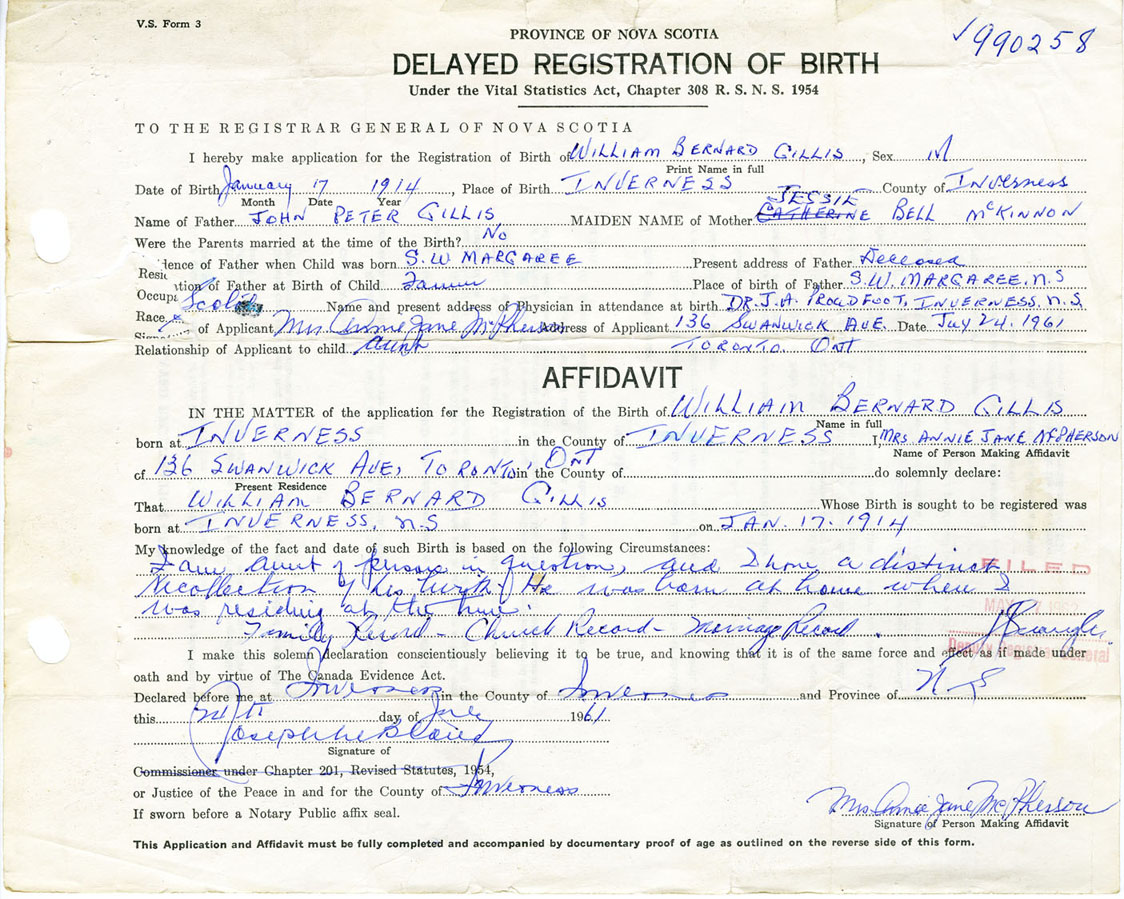 V.S. Form 3
✓990258
PROVINCE OF NOVA SCOTIA
DELAYED REGISTRATION OF BIRTH
Under the Vital Statistics Act, Chapter 308 R. S. N. S. 1954
TO THE REGISTRAR GENERAL OF NOVA SCOTIA
I hereby make application for the Registration of Birth of WILLIAM BERNARD GILLIS, Sex M
Print Name in full
Date of Birth January 17 1914, Place of Birth INVERNESS County of INVERNESS
Month Date Year
JESSIE
Name of Father JOHN PETER GILLIS MAIDEN NAME of Mother CATHERINE BELL McKINNON
Were the Parents married at the time of the Birth? No
Resi dence of Father when Child was born S.W MARGAREE Present address of Father Deceased
Occupa tion of Father at Birth of Child Farmer Place of birth of Father S.W. MARGAREE, N.S
Race Scotch Name and present address of Physician in attendance at birth DR. J. A. PROUDFOOT, INVERNESS, N.S.
of Applicant Mrs. Annie Jane McPherson Address of Applicant 136 SWANWICK AVE. Date July 24. 1961
Relationship of Applicant to child Aunt TORONTO. ONT
AFFIDAVIT
IN THE MATTER of the application for the Registration of the Birth of WILLIAM BERNARD GILLIS
Name in full
born at INVERNESS in the County of INVERNESS I, MRS ANNIE JANE McPHERSON
Name of Person Making Affidavit
of 136 SWANWICK AVE, TORONTO, ONT in the County of do solemnly declare:
Present Residence
That WILLIAM BERNARD GILLIS Whose Birth is sought to be registered was
born at INVERNESS, N.S on JAN. 17. 1914
My knowledge of the fact and date of such Birth is based on the following Circumstances:
I am aunt of person in question, and I have a distinct
recollection of his birth. He was born at house where I
was residing at the time.
FILED
Family Record - Church Record - Marriage Record.
Deputy Registrar General
I make this solemn declaration conscientiously believing it to be true, and knowing that it is of the same force and effect as if made under
oath and by virtue of The Canada Evidence Act.
Declared before me at Inverness in the County of Inverness and Province of N S
this 24th day of July 1961
Signature of
Commissioner under Chapter 201, Revised Statutes, 1954,
or Justice of the Peace in and for the County of Inverness
If sworn before a Notary Public affix seal.
Mrs. Annie Jane McPherson
Signature of Person Making Affidavit
This Application and Affidavit must be fully completed and accompanied by documentary proof of age as outlined on the reverse side of this form.